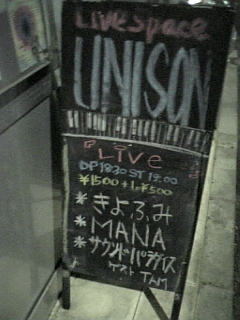 Live Space
UNISON
『Live』
OP 18:30 ST 19:00
¥1500+1D¥500
* きよふみ
* MANA
* サウンドパラダイス
ゲスト TAM